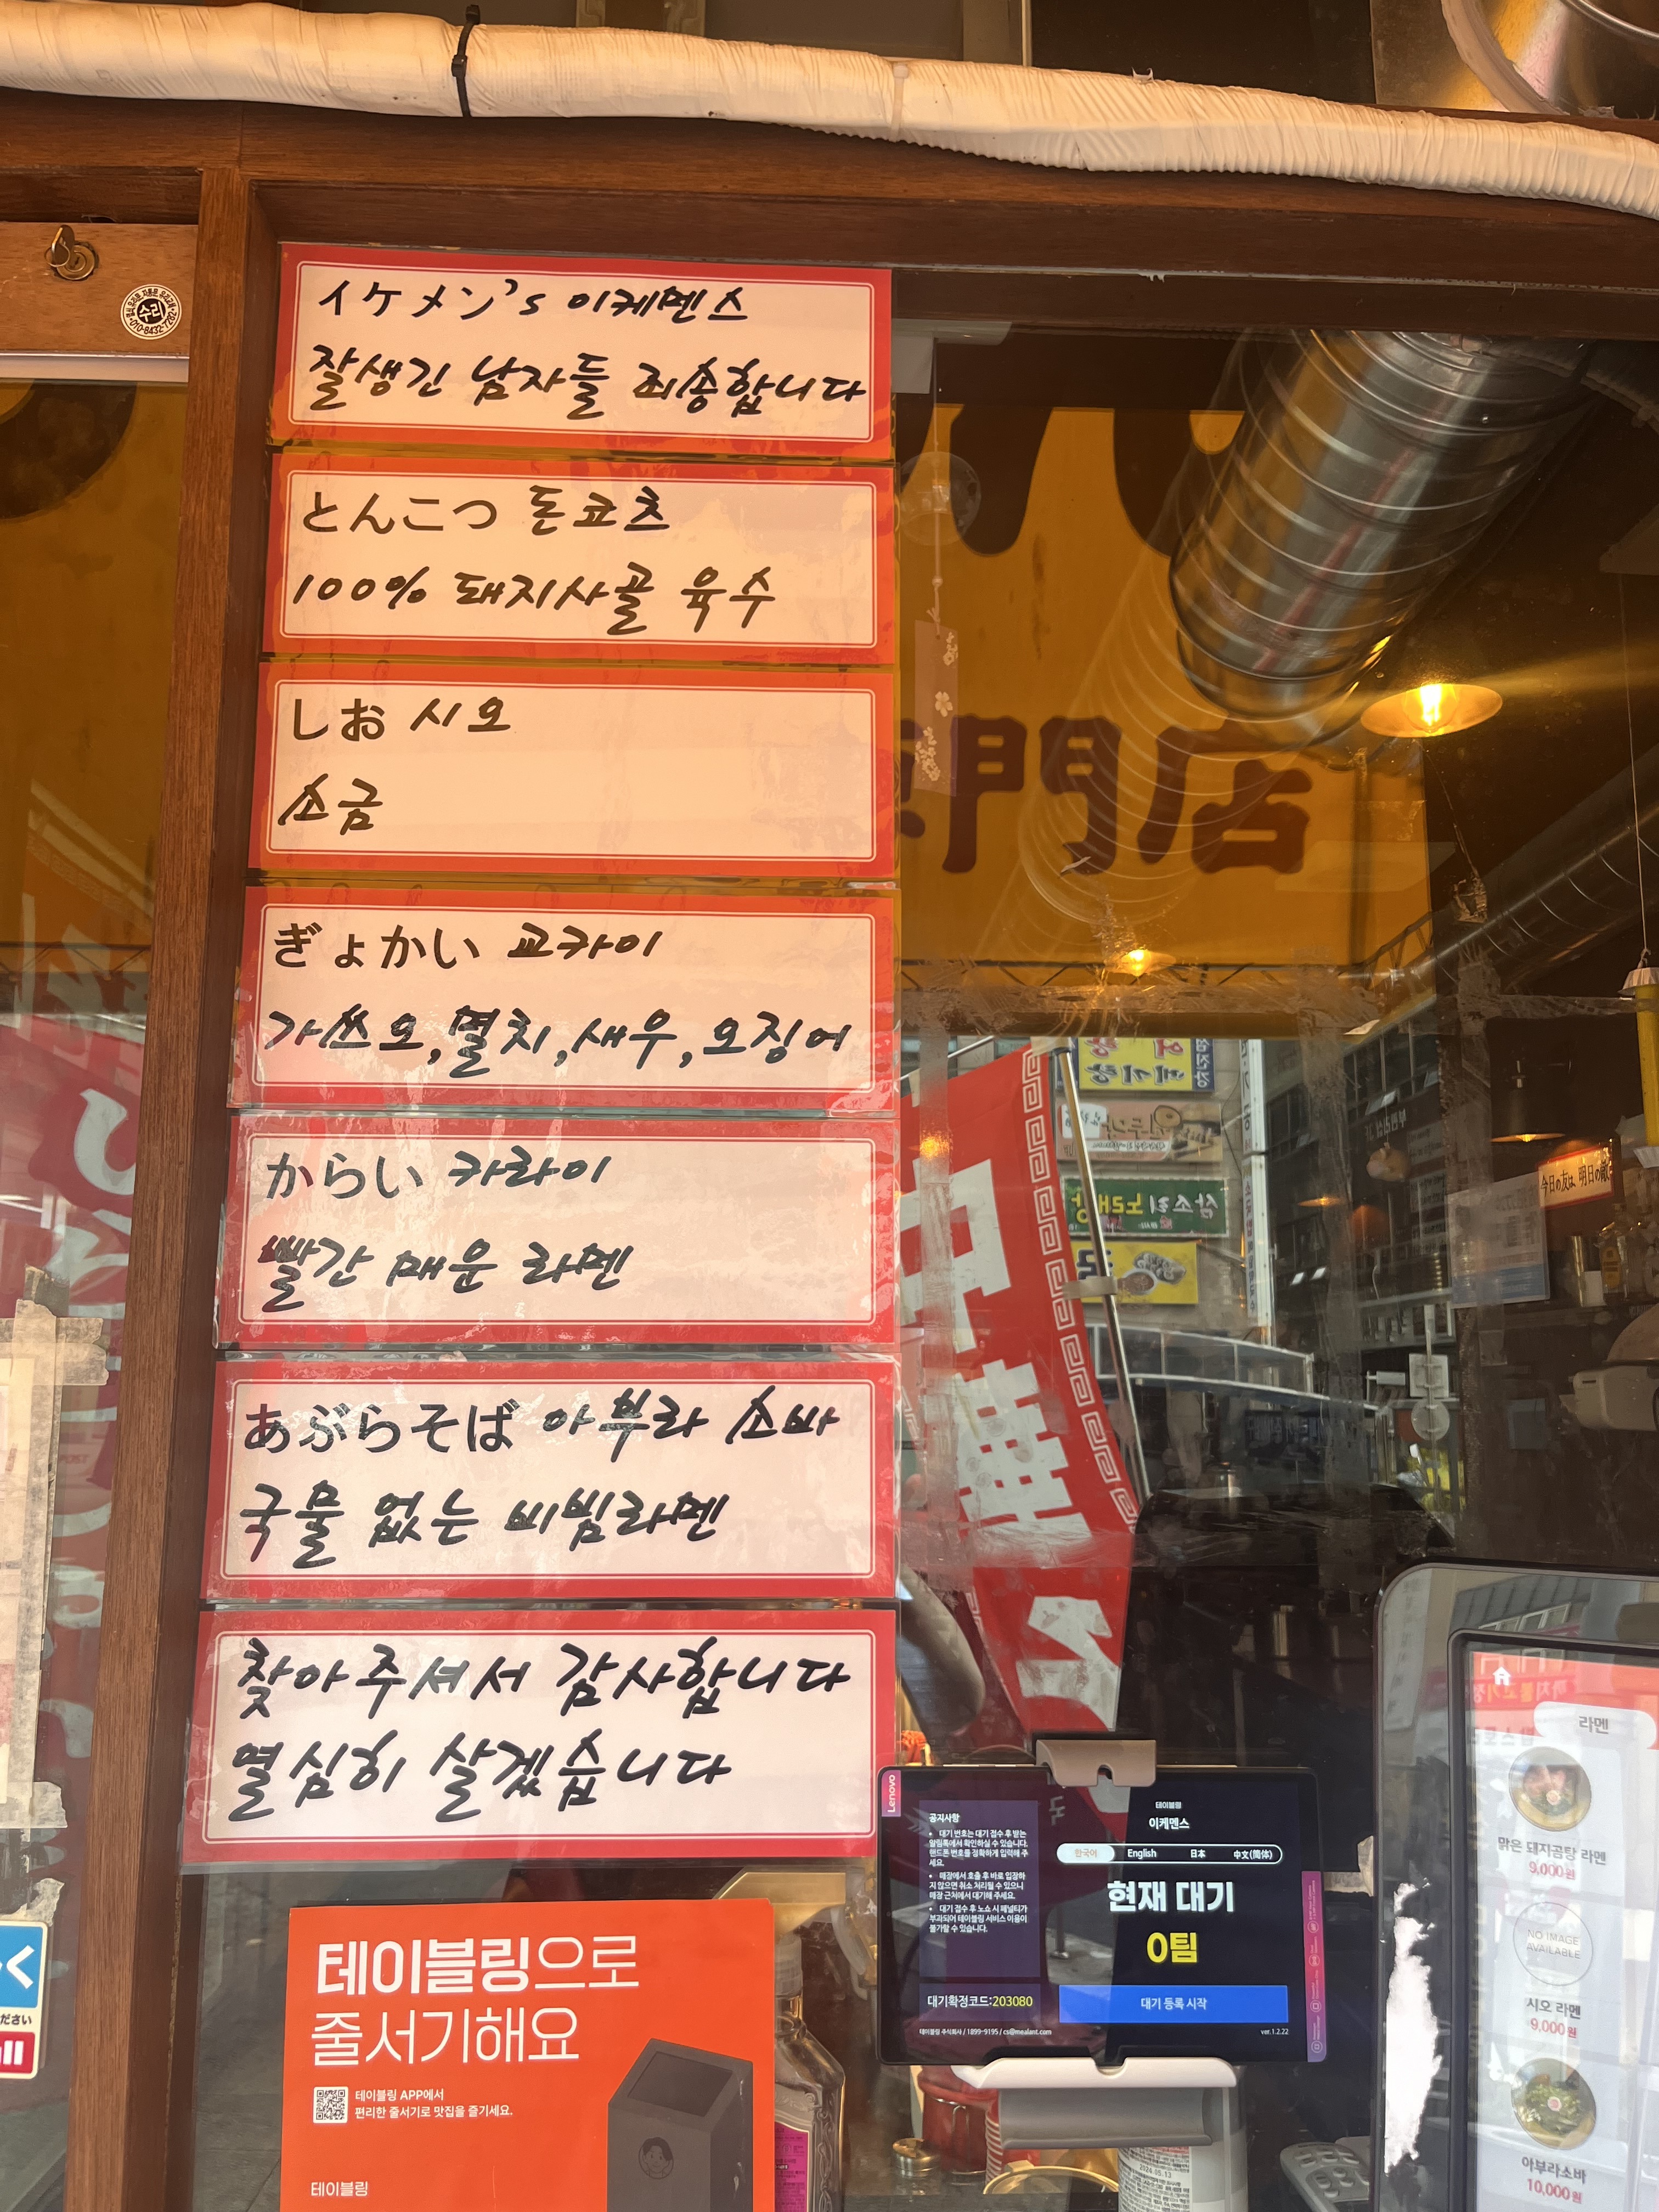 イケメン's 이케멘스
잘생긴 남자들 죄송합니다
とんこつ 돈코츠
100% 돼지사골 육수
しお 시오
소금
ぎょかい 교카이
가쓰오,멸치,새우,오징어
からい 카라이
빨간 매운 라멘
あぶらそば 아부라 소바
국물 없는 비빔라멘
찾아주셔서 감사합니다
열심히 살겠습니다
門店
수리
今日の友は 明日の敵
삼소리 노래방
테이블링으로
줄서기해요
테이블링 APP에서
편리한 줄서기로 맛집을 즐기세요.
테이블링
Lenovo
공지사항
• 대기 번호는 대기 접수 후 받는
알림톡에서 확인하실 수 있습니다.
핸드폰 번호를 정확하게 입력해 주
세요.
• 매장에서 호출 후 바로 입장하
지 않으면 취소 처리될 수 있으니
매장 근처에서 대기해 주세요.
• 대기 접수 후 노쇼 시 페널티가
부과되어 테이블링 서비스 이용이
불가할 수 있습니다.
대기확정코드:203080
테이블링 주식회사 / 1899-9195 / cs@mealant.com
테이블링
이케멘스
한국어 English 日本 中文(简体)
현재 대기
0팀
대기 등록 시작
ver.1.2.22
라멘
맑은 돼지곰탕 라멘
9,000원
NO IMAGE
AVAILABLE
시오 라멘
9,000원
아부라소바
10,000원
ださい
2026.05.13